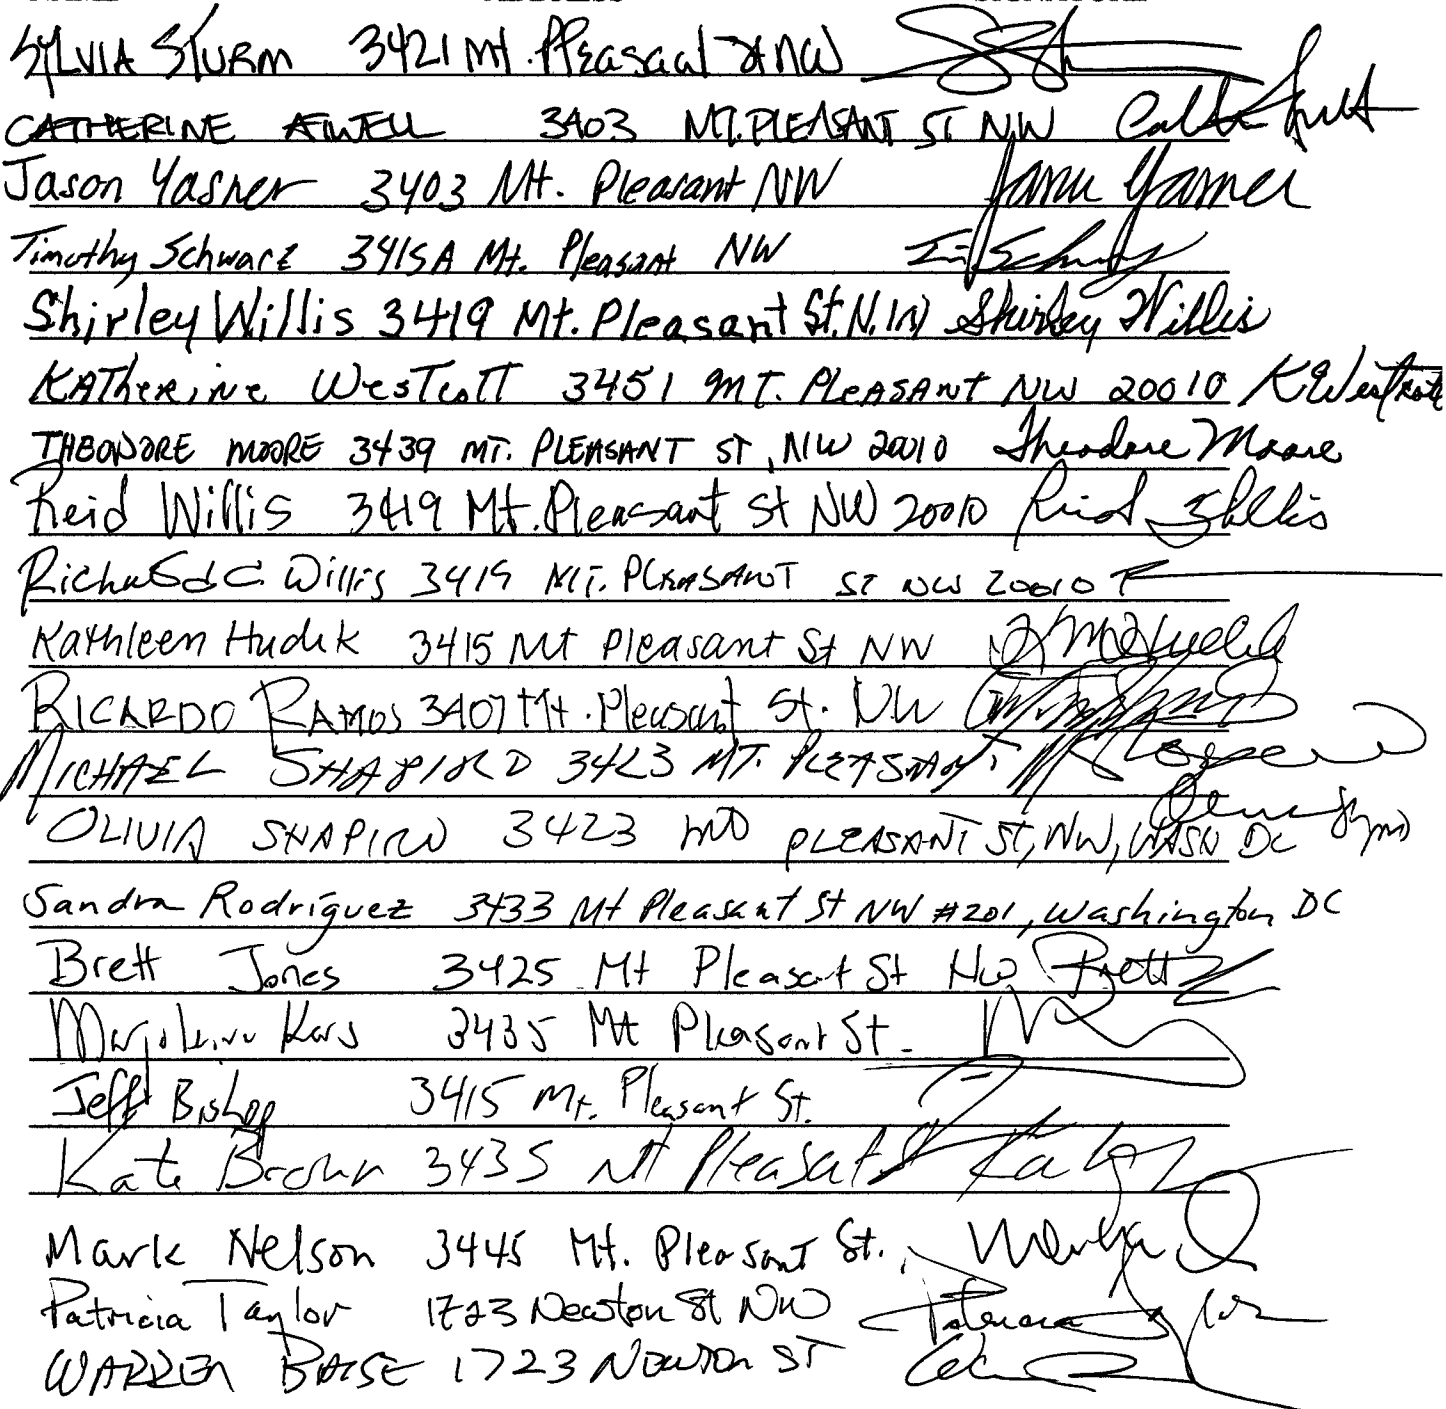 SYLVIA STURM 3421 Mt. Pleasant St NW
CATHERINE ATWELL 3403 MT. PLEASANT ST NW
Jason Yasner 3403 Mt. Pleasant NW Jason Yasner
Timothy Schwarz 3415A Mt. Pleasant NW
Shirley Willis 3419 Mt. Pleasant St. N.W Shirley Willis
KATherine WesTcoTT 3451 MT. PLeASANT NW 20010 K Westcott
THEODORE MOORE 3439 MT. PLEASANT ST, NW 20010 Theodore Moore
Reid Willis 3419 Mt. Pleasant St NW 20010 Reid Willis
Richard C. Willis 3419 MT. PLEASANT ST NW 20010
Kathleen Hudik 3415 Mt Pleasant St NW
RICARDO RAMOS 3407 Mt. Pleasant St. NW
MICHAEL SHAPIRO 3423 MT. PLEASANT
OLIVIA SHAPIRO 3423 MT PLEASANT ST, NW, WASH DC
Sandra Rodríguez 3433 Mt Pleasant St NW #201, Washington DC
Brett Jones 3425 Mt Pleasant St NW Brett
Marjoleine Kars 3435 Mt Pleasant St.
Jeff Bishop 3415 Mt. Pleasant St.
Kate Brown 3435 Mt Pleasant St
Mark Nelson 3445 Mt. Pleasant St.
Patricia Taylor 1723 Newton St NW Patricia
WARREN 1723 Newton ST